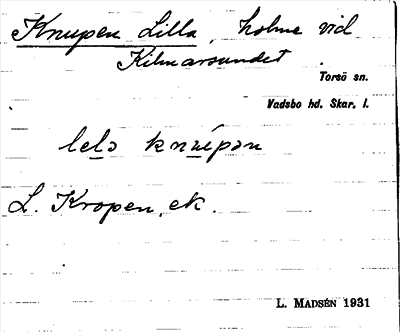 Knupen Lilla, holme vid
Kilnarsundet.
Torsö sn.
Vadsbo hd. Skar. l.
lelə knupən
L. Kropen, ek.
L. MADSÉN 1931